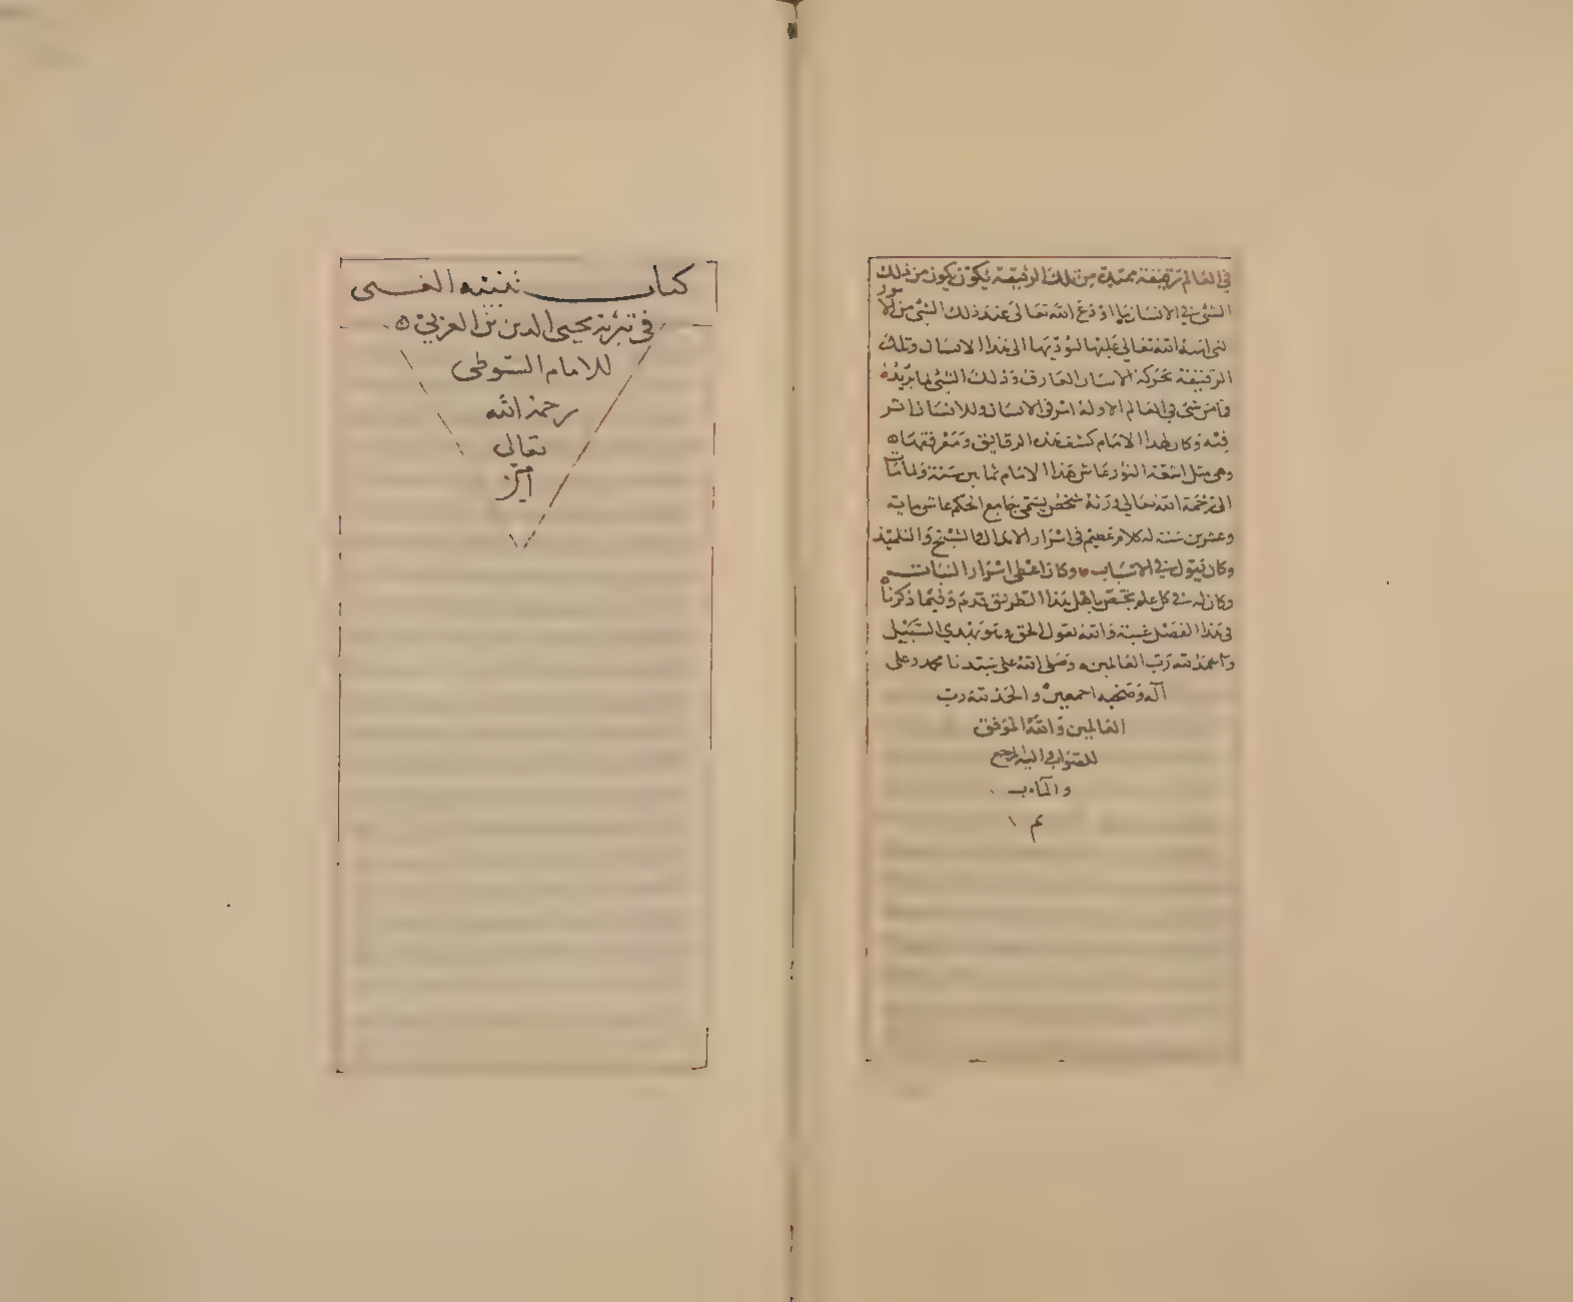 في العالم رقيقة ممتدة من تلك الرقيقة يكون يكون من ذلك
الشي في الانسان ما اودع الله تعالى عند ذلك الشي من الامور
التي امنه الله تعالى عليها ليؤديها الى هذا الانسان وتلك
الرقيقة يحركه الانسان العارف وذلك الشي لما يريده
فما من شي في العالم الا وله اثر في الانسان وللانسان اثر
فيه وكان لهذا الامام كشف هذه الرقايق ومعرفتها
وهي مثل اشعة النور عاش هذا الامام ثمانين سنة ولما مات
الى رحمة الله تعالى ورثه شخص يسمى جامع الحكم عاش مايه
وعشرين سنة له كلام عظيم في اسرار الابدال والشيخ والتلميذ
وكان يقول في الاسباب وكان اعطى اسرار النبات
وكان له في كل علم يختص باهل هذا الطريق قدم وفيما ذكرنا
في هذا الفصل غنية والله يقول الحق وهو يهدي السبيل
والحمد لله رب العالمين وصلى الله على سيدنا محمد وعلى
آله وصحبه اجمعين والحمد لله رب
العالمين والله الموفق
للصواب واليه المرجع
والمآب
تم
كتاب تنبيه الغبي
في تبرئة محيي الدين بن العربي
للامام السيوطي
رحمه الله
تعالى